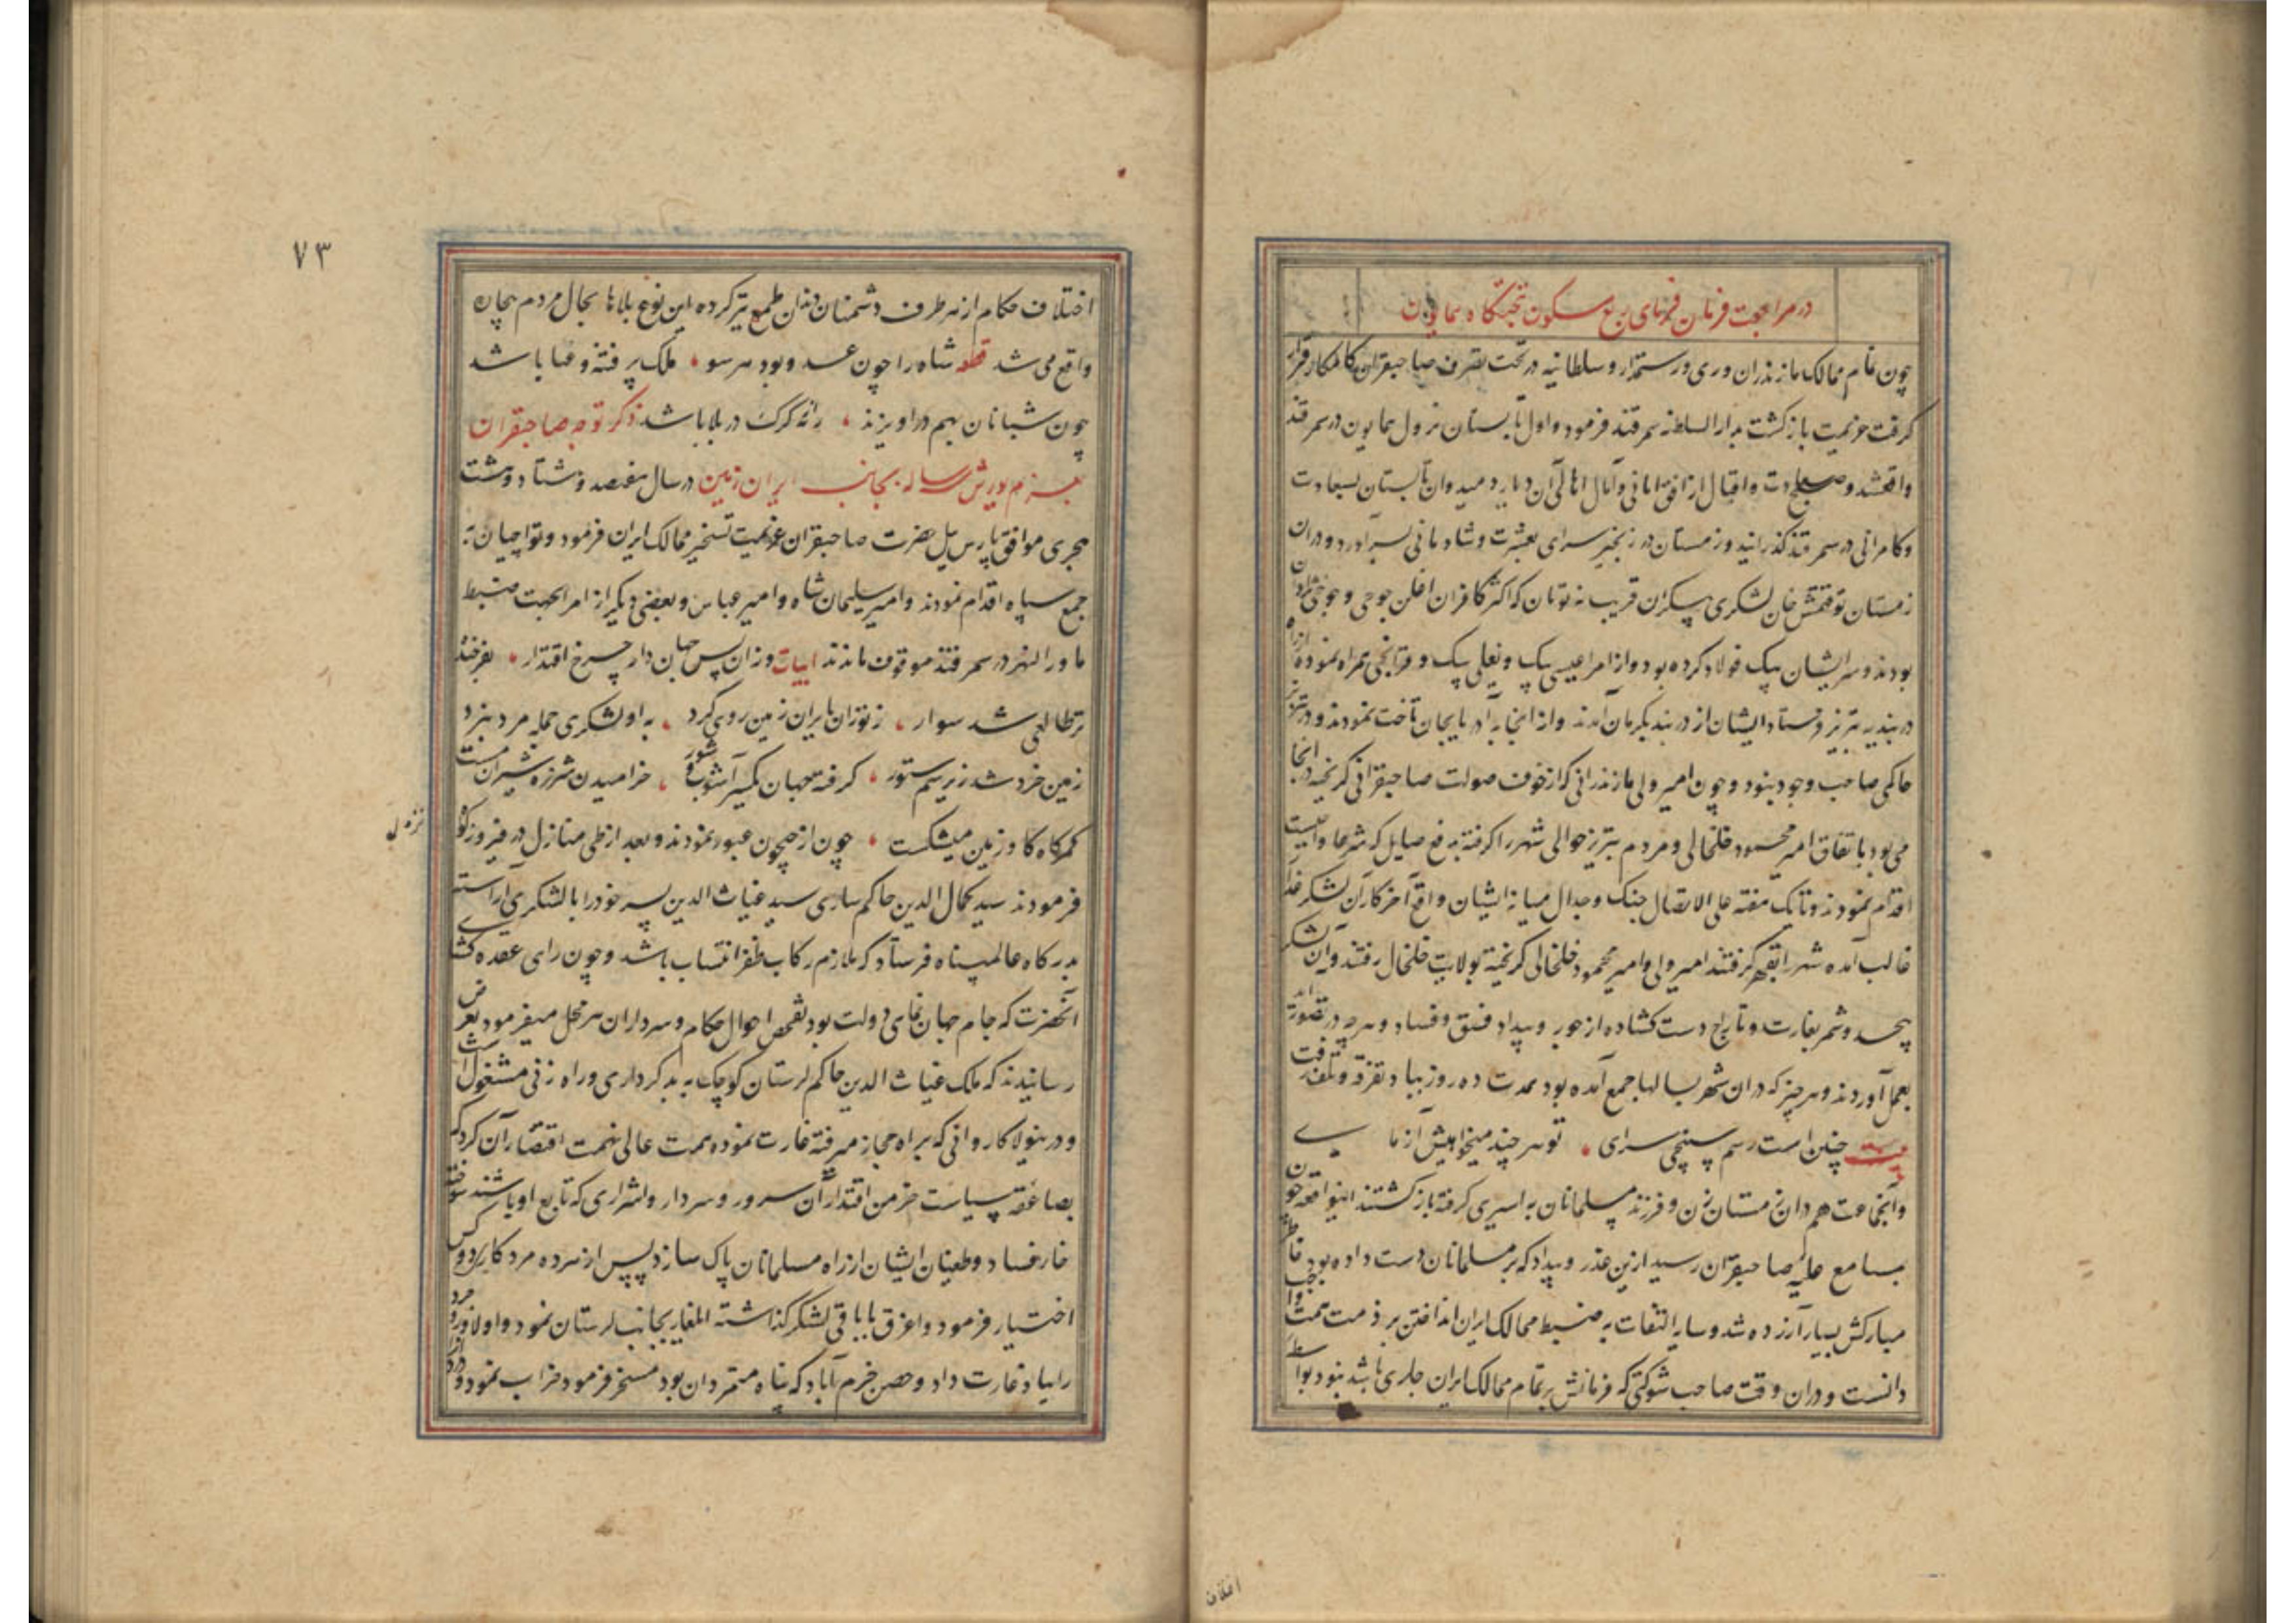 در مراجعت فرمان فرمای ربع مسکون بتختگاه همایون
چون تمام ممالک مازندران وری ورستمدار وسلطانیه در تحت تصرف صاحبقران کامکار قرار
گرفت عزیمت بازگشت بدار السلطنه سمرقند فرمود واول تابستان نزول همایون در سمرقند
واقعشد وصبح سعادت واقبال از افق امانی وآمال اهالی آن دیار دمید وان تابستان بسعادت
وکامرانی در سمرقند گذرانید وزمستان در زنجیر سرای بعشرت وشادمانی بسر آورد ودران
زمستان توقتمش خان لشکری بیکران قریب نه تومان که اکثر کافران اغلن جوجی وجوجی نژاد
بودند وسر ایشان بیک فولاد کرده بود واز امرا عیسی بیک ویغلی بیک و قزانچی همراه نموده از راه
دربند به تبریز فرستاد ایشان از دربند بگرمان آمدند واز انجا به آدربایجان تاخت نمودند ودر تبریز
حاکمی صاحب وجود نبود وچون امیر ولی مازندرانی که از خوف صولت صاحبقرانی گریخته در انجا
می بود باتفاق امیر محمود خلخالی ومردم تبریز حوالی شهر را گرفته بدفع صایل که شرعا واجبست
اقدام نمودند وتا یک هفته علی الاتصال جنگ وجدال میانه ایشان واقع آخر کار آن لشکر غدار
غالب آمده شهر را بقهر گرفتند امیر ولی وامیر محمود خلخالی گریخته بولایت خلخال رفتند وآن لشکر
بیحد وشمر بغارت وتاراج دست گشاده از جور وبیداد وفسق وفساد وهرچه در تصور آید
بعمل آوردند وهر چیز که دران شهر بسالها جمع آمده بود بمدت ده روز بباد تفرقه وتلف رفت
بیت چنین است رسم سپنجی سرای تو هر چند میخواهیش آزمای
وآنجماعت هم دران زمستان زن وفرزند مسلمانان به اسیری گرفته بازگشتند اینواقعه چون
بمسامع علیه صاحبقران رسید ازین غدر وبیداد که بر مسلمانان دست داده بود خاطر
مبارکش بسیار آزرده شد وسایه التفات به ضبط ممالک ایران انداختن بر ذمت همت واجب
دانست ودران وقت صاحب شوکتی که فرمانش بر تمام ممالک ایران جاری باشد نبود بواسطه
۷۳
اختلاف حکام از هر طرف دشمنان دندان طمع تیز کرده این نوع بلاها بحال مردم بیچاره
واقع می شد قطعه شاه را چون عدو بود هر سو ملک پر فتنه وعنا باشد
چون شبانان بهم دراویزند رمه گرگ در بلا باشد ذکر توجه صاحبقران
بعزم یورش سه ساله بجانب ایران زمین در سال هفتصد وهشتاد وهشت
هجری موافق پارس ییل حضرت صاحبقران عزیمت تسخیر ممالک ایران فرمود وتواجیان به
جمع سپاه اقدام نمودند وامیر سلیمان شاه وامیر عباس وبعضی دیگر از امرا بجهت ضبط
ما ورا النهر در سمرقند موقوف ماندند ابیات وزان پس جهان دار چرخ اقتدار بفرخنده
تر طالعی شد سوار ز توران بایران زمین روی کرد به او لشکری جمله مرد نبرد
زمین خرد شد زیر سم ستور گرفته جهان یکسر آشوب وشور خرامیدن شرزه شیران مست
کمرگاه گاو زمین میشکست چون از جیحون عبور نمودند وبعد از طی منازل در فیروزکوه
نزول
فرمودند سید کمال الدین حاکم ساری سید غیاث الدین پسر خود را با لشکری آراسته
بدرگاه عالمپناه فرستاد که ملازم رکاب ظفر انتساب باشد وچون رای عقده گشای
آنحضرت که جام جهان نمای دولت بود تفحص احوال حکام وسرداران هر محل میفرمود بعرض
رسانیدند که ملک غیاث الدین حاکم لرستان کوچک به بد کرداری وراه زنی مشغول است
ودرینولا کاروانی که براه حجاز میرفته غارت نموده همت عالی نهمت اقتضا آن کرد که
بصاعقه سیاست خرمن اقتدار آن سرور وسردار واشراری که تابع او باشند سوخته
خار فساد وطغیان ایشان از راه مسلمانان پاک سازد پس از هر ده مرد کاری دو کس
اختیار فرمود واغرق با باقی لشکر گذاشته ایلغار بجانب لرستان نمود واولا ورو جرد
را بباد غارت داد وحصن خرم آباد که پناه متمردان بود مسخر فرمود خراب نمود
اغلان